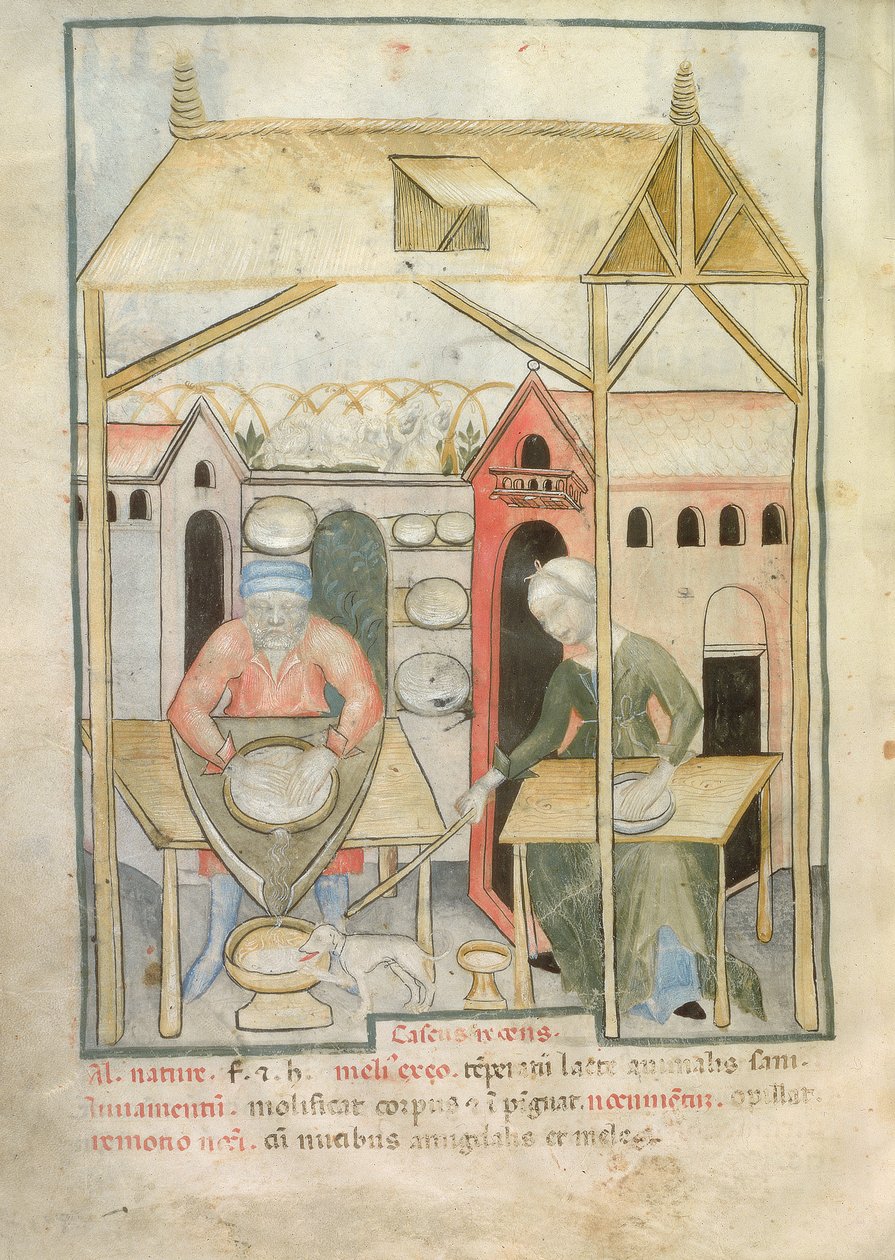 Caseus recens.
Al. nature. f. ⁊ h. meli' exeo. temperatu lacte animalis sani.
Iuuamentu. molificat corpus ⁊ i pīguat. nocumētu. opillat.
remotio noci. cū nucibus amigdalis et melle.